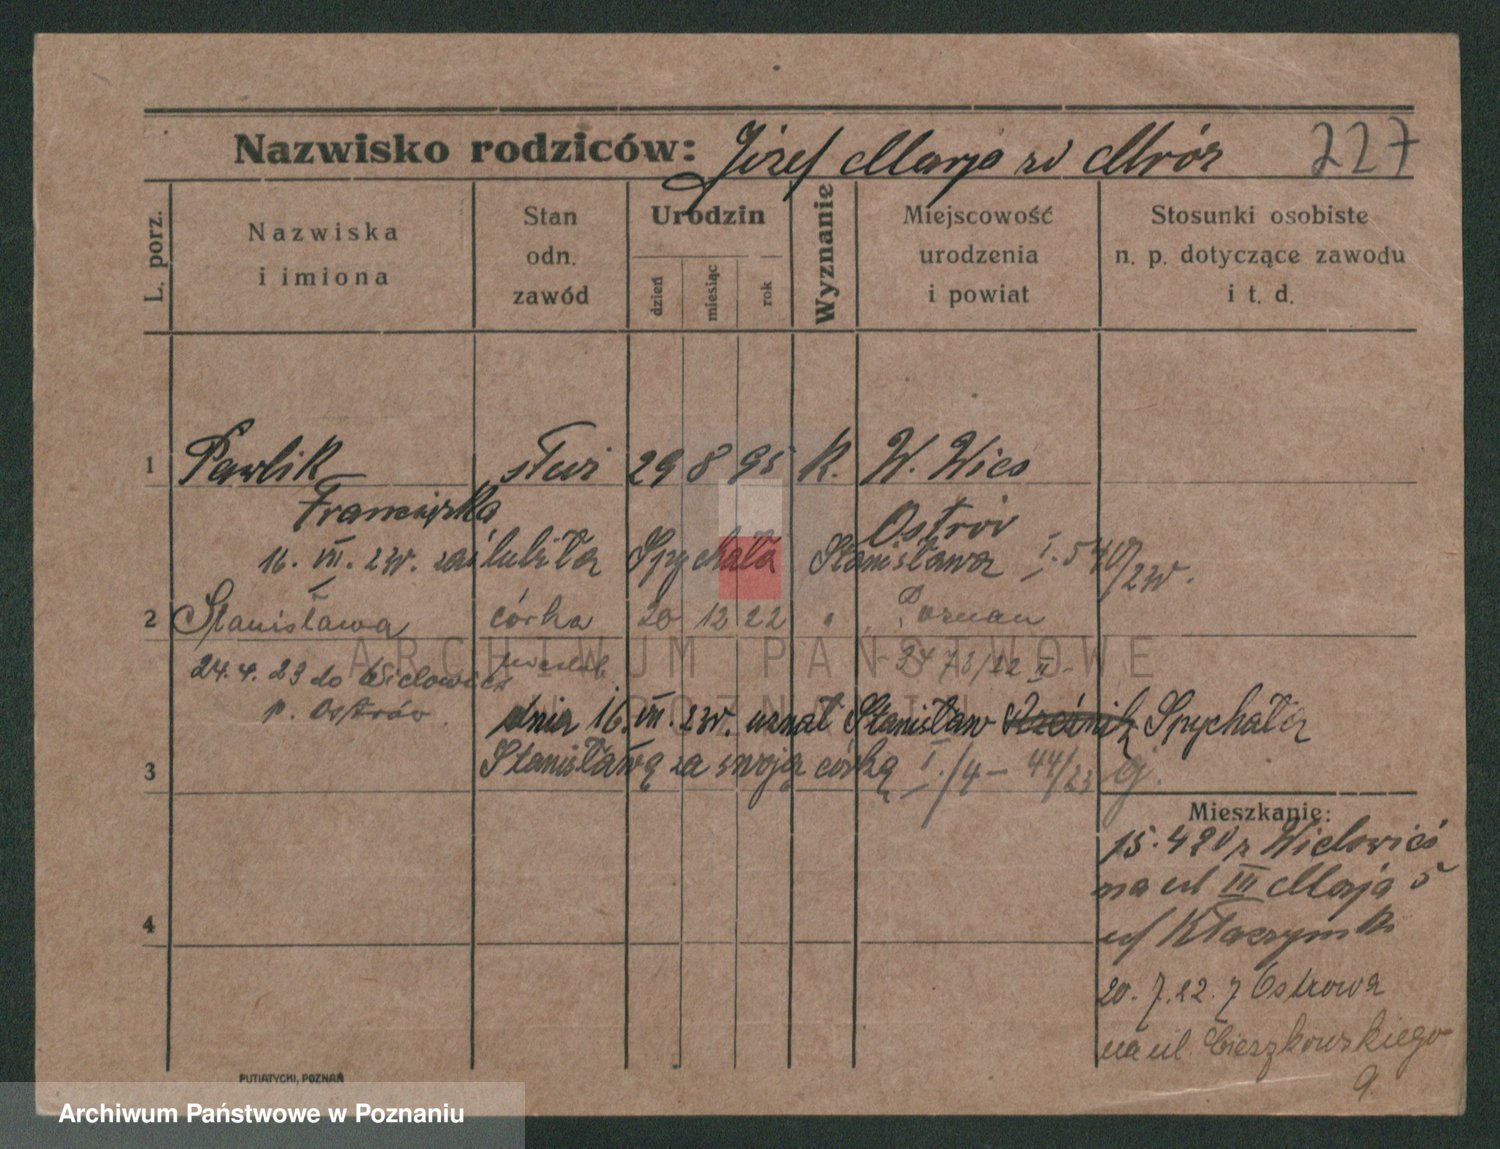 Nazwisko rodziców: Józef Marja zd Mróz 227
L. porz.
Nazwiska
i imiona
Stan
odn.
zawód
Urodzin
dzień
miesiąc
rok
Wyznanie
Miejscowość
urodzenia
i powiat
Stosunki osobiste
n. p. dotyczące zawodu
i t. d.
1 Pawlik 29 8 95 K. W. Wies
Franciszka Ostrów
16. VII. 23r. zaślubiła Spychała Stanisława I. 540/23r.
2 Stanisława córka 20 12 22 " Poznan
24. 4. 23 do Wielowieś nieślub. 3473/22 II
p. Ostrów
dnia 16. VII. 23r. uznał Stanisław Spychała
Stanisławę za swoją córkę I./4 – 44/23
3
Mieszkanie:
15. 4 20 z Wielowieś
na ul III Maja 5
4
20. 7. 22. z Ostrowa
na ul. Cieszkowskiego
9.
PUTIATYCKI, POZNAŃ
ARCHIWUM PAŃSTWOWE
W POZNANIU
Archiwum Państwowe w Poznaniu